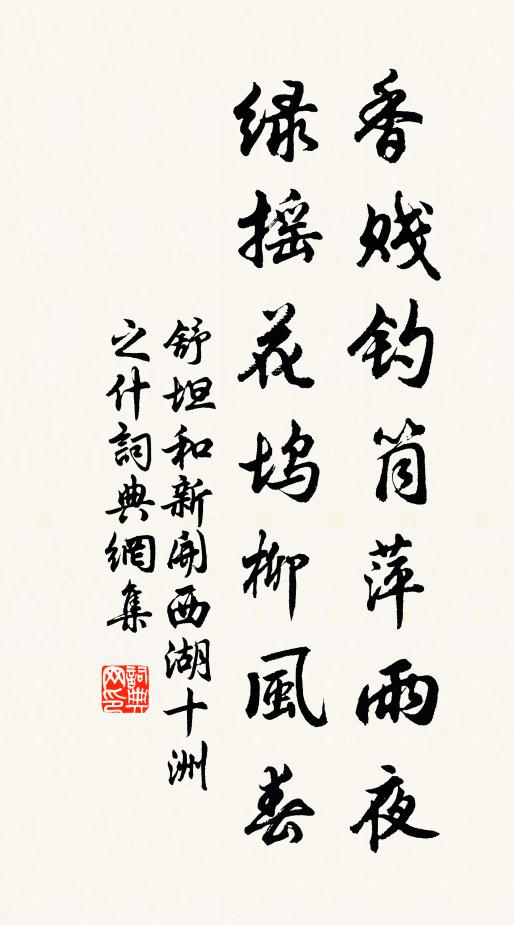 香残钓筒萍雨夜
绿摇花坞柳風春
舒坦和新開西湖十洲
之什詞典網集
詞典
网印